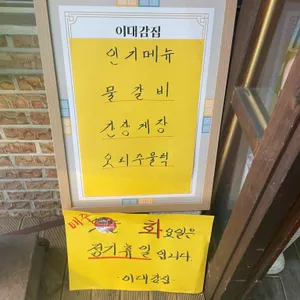 이대감집
인기메뉴
물갈비
간장게장
오시수물럭
매주 화요일은
정기휴일 입니다.
이대감집